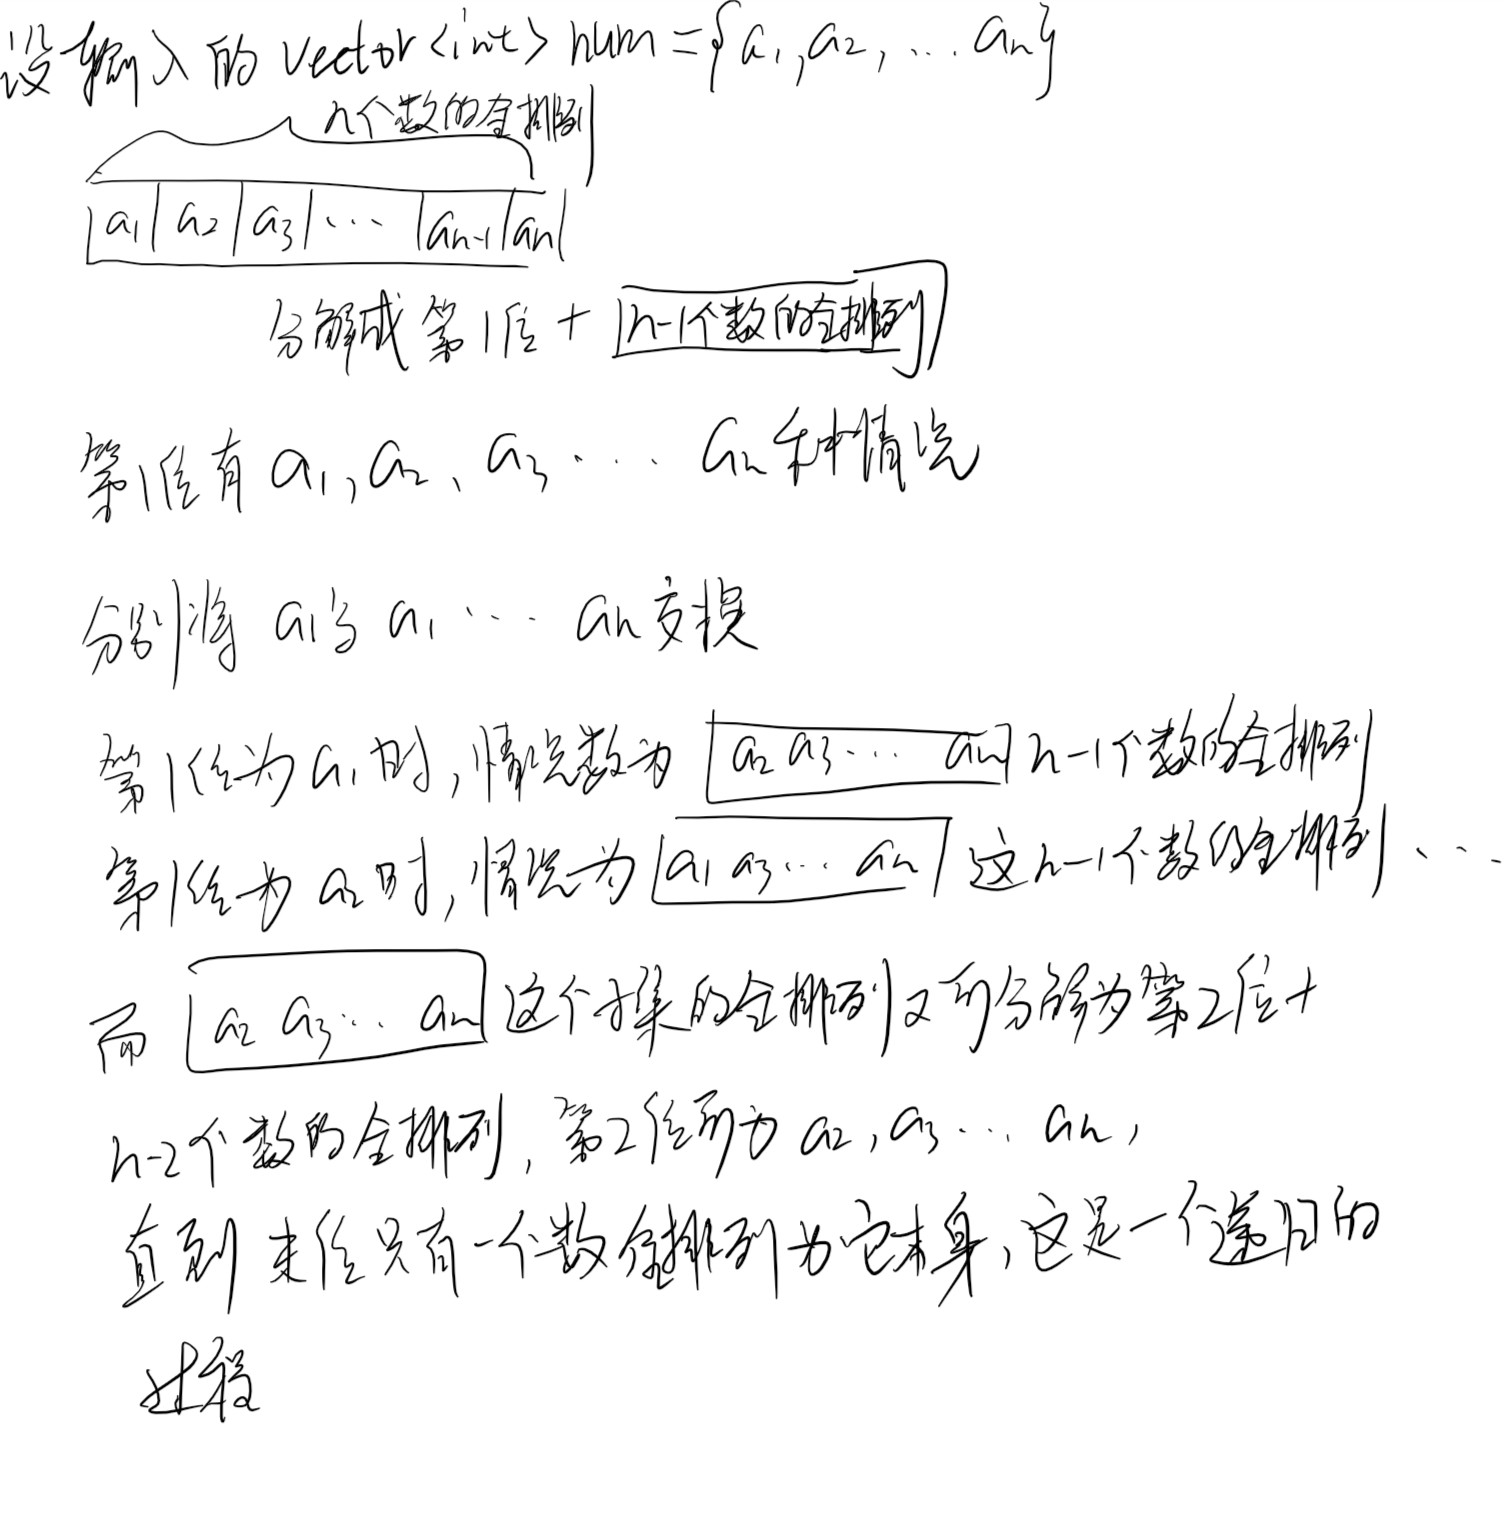 设输入的 vector<int> num={a1,a2,...an}
n个数的全排列
a1 a2 a3 ... an-1 an
分解成 第1位 + n-1个数的全排列
第1位有 a1,a2、a3... an种情况
分别将 a1与 a1 ... an交换
第1位为a1时,情况数为 a2 a3... an n-1个数的全排列
第1位为a2时,情况为 a1 a3... an 这n-1个数的全排列...
而 a2 a3... an 这个子集的全排列又可分解为第2位+
n-2个数的全排列,第2位可为 a2,a3... an,
直到末位只有一个数全排列为它本身,这是一个递归的
过程